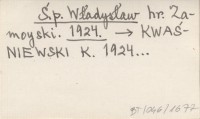 Ś.p. Władysław hr. Za-
moyski. 1924. → KWAŚ-
NIEWSKI K. 1924...